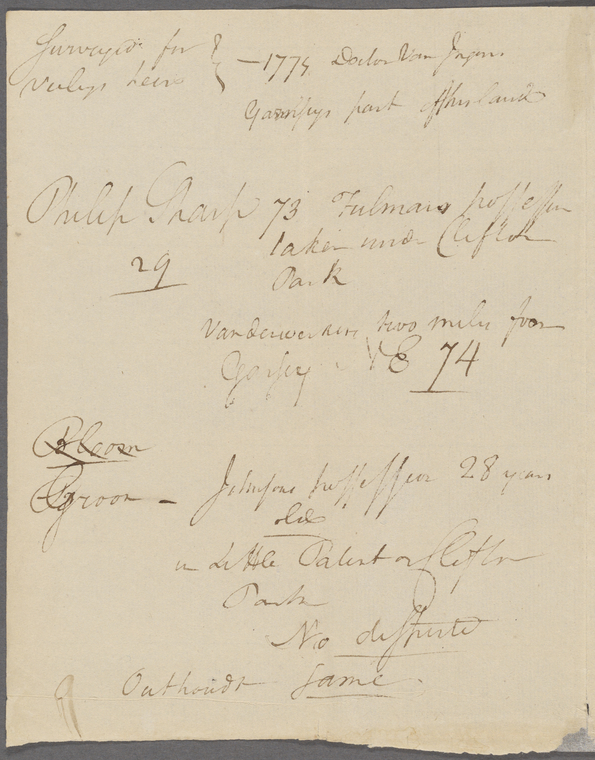 Surveyed for
Heirs } — 1774 Doctor Van
part of his land
Philip Sharp 73 Fulmans possession
29 taken under Clifton
Park
Vanderwerken two miles from
74
Bloom
Groom — Johnsons possession 28 years
old
in Little Patent or Clifton
Park
No disputed
Outhoudt Same